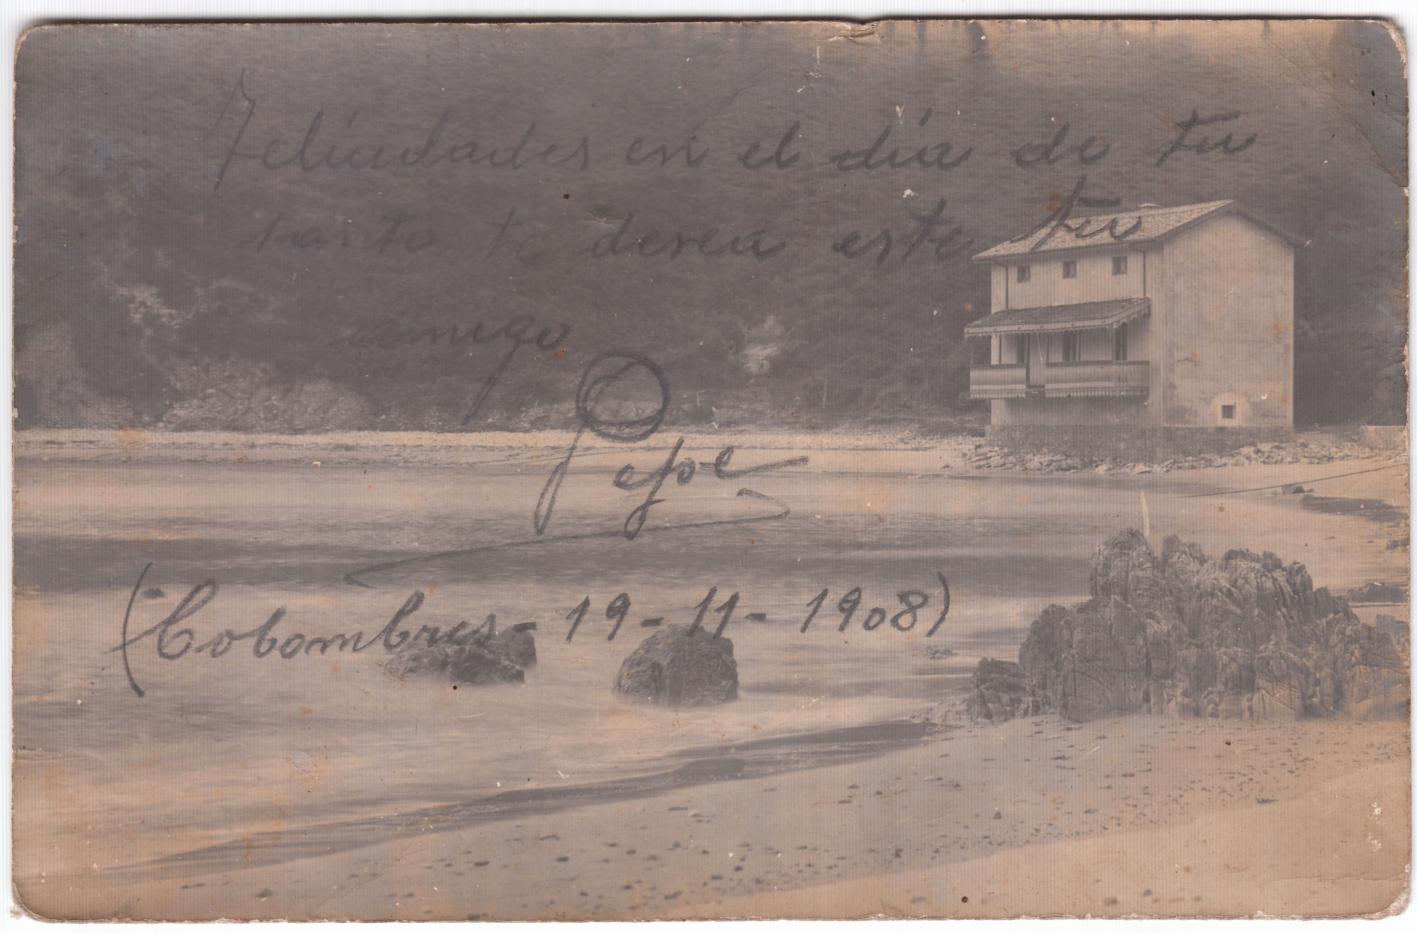 Felicidades en el día de tu
santo te desea este tu
amigo
Pepe
(Colombres - 19 - 11 - 1908)